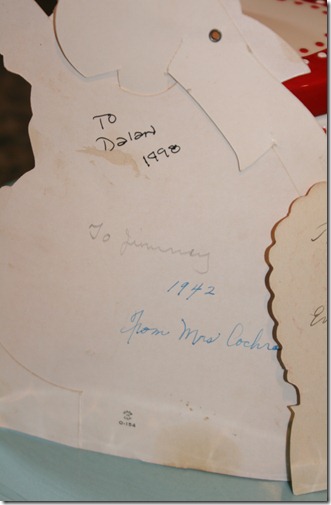 To
Dalan
1998
To Jimmey
1942
From Mrs Cochra